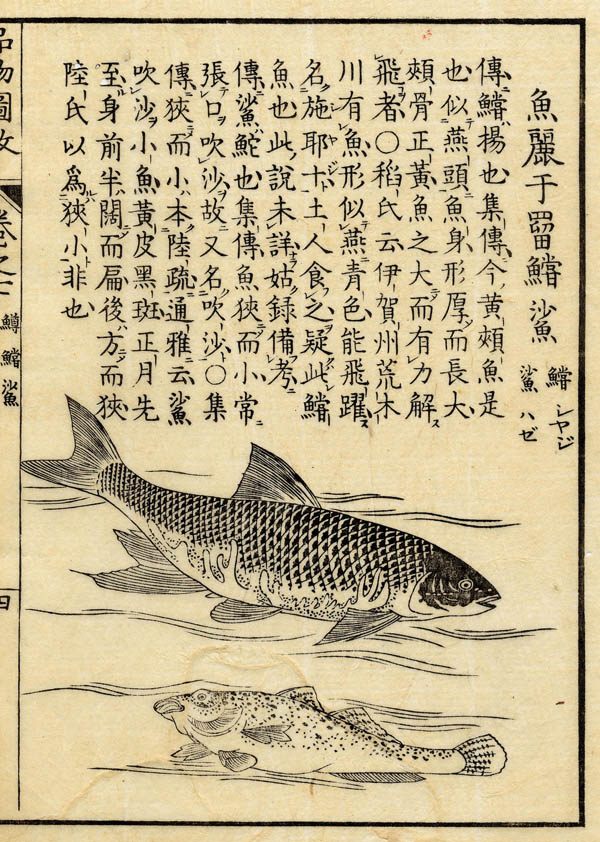 魚麗于罶鱨鯊
鱨 シヤジ
鯊 ハゼ
傳鱨揚也集傳今黃頰魚是
也似燕頭魚身形厚而長大
頰骨正黃魚之大而有力解
飛者〇稻氏云伊賀州荒木
川有魚形似燕青色能飛躍
名施耶十土人食之疑此鱨
魚也此說未詳姑錄備考
傳鯊鮀也集傳魚狹而小常
張口吹沙故又名吹沙〇集
傳狹而小本陸疏通雅云鯊
吹沙小魚黃皮黑斑正月先
至身前半闊而扁後方而狹
陸氏以爲狹小非也
品物圖攷
鱒 鱨 鯊
四